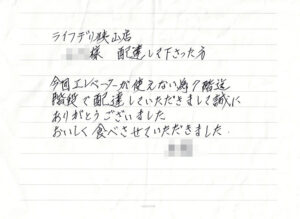 ライフデリ狭山店
様 配達して下さった方
今回エレベーターが使えない為7階迄
階段で配達していただきまして誠に
ありがとうございました
おいしく食べさせていただきました.